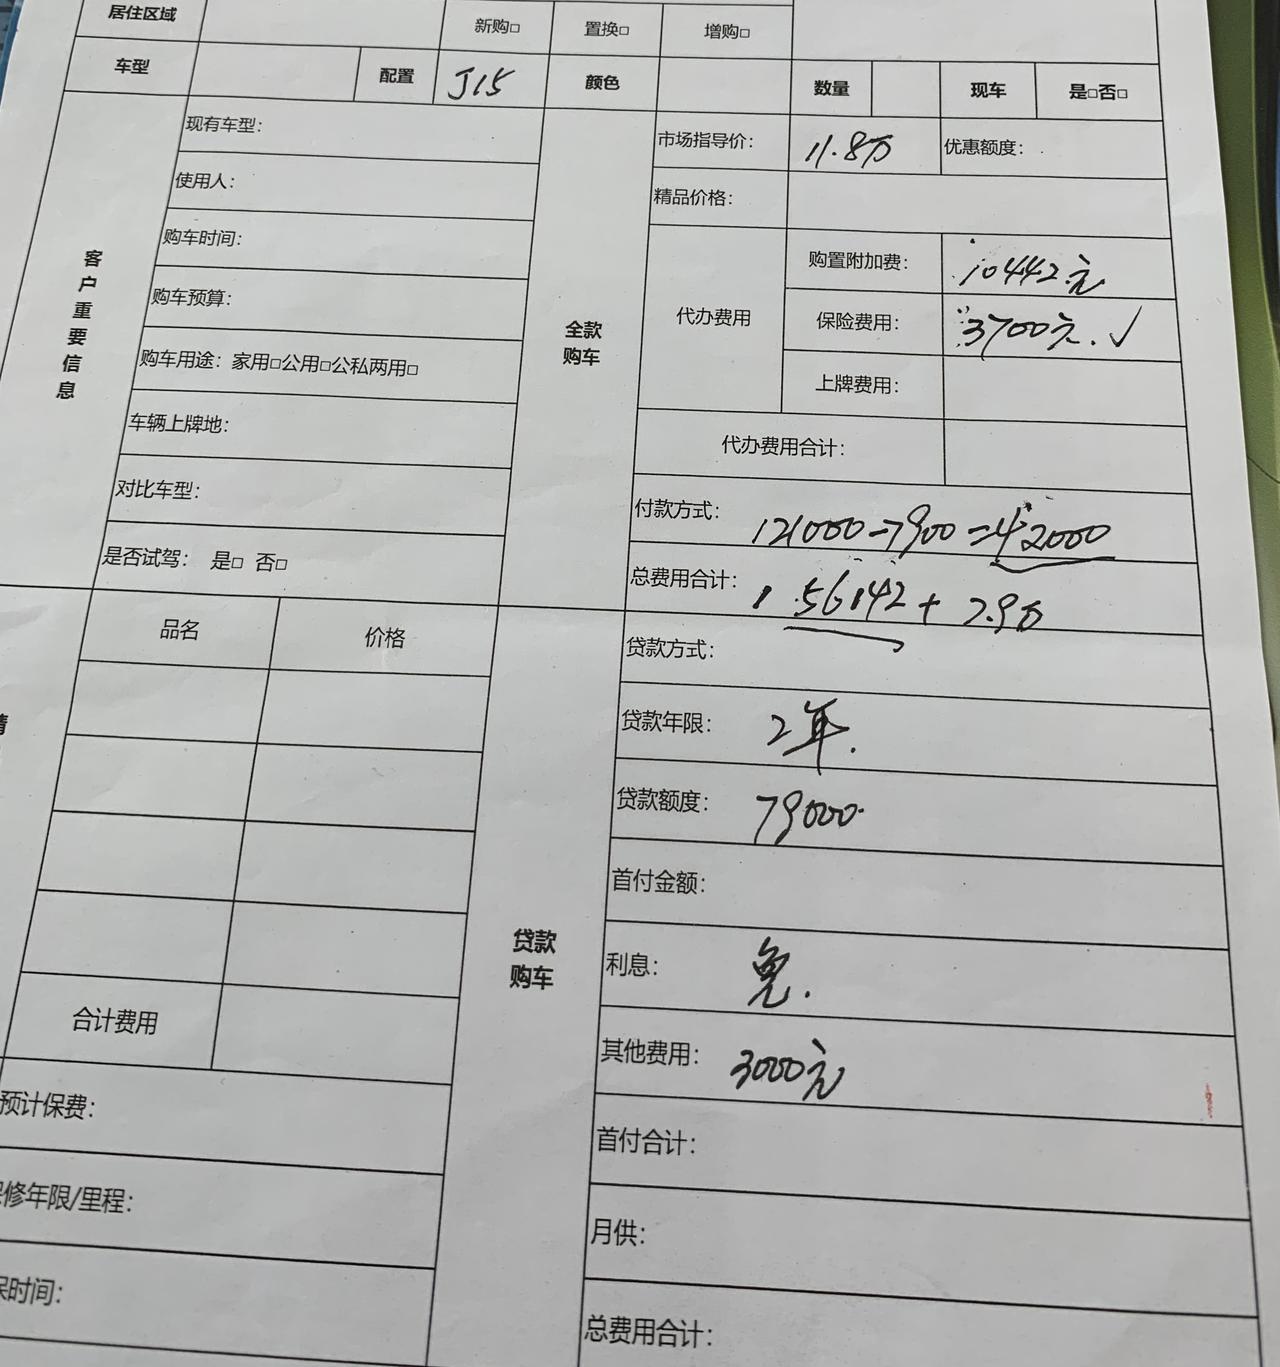 居住区域 新购□ 置换□ 增购□
车型 配置 J15 颜色 数量 现车 是□否□
客户重要信息
现有车型：
使用人：
购车时间：
购车预算：
购车用途：家用□公用□公私两用□
车辆上牌地：
对比车型：
是否试驾： 是□ 否□
全款购车
市场指导价： 11.8万 优惠额度：
精品价格：
代办费用
购置附加费： 10442元
保险费用： 3700元.✓
上牌费用：
代办费用合计：
付款方式： 121000-7900=42000
总费用合计： 56142+7.9万
品名 价格
合计费用
预计保费：
修年限/里程：
保时间：
贷款购车
贷款方式：
贷款年限： 2年.
贷款额度： 79000.
首付金额：
利息： 免.
其他费用： 3000元
首付合计：
月供：
总费用合计：